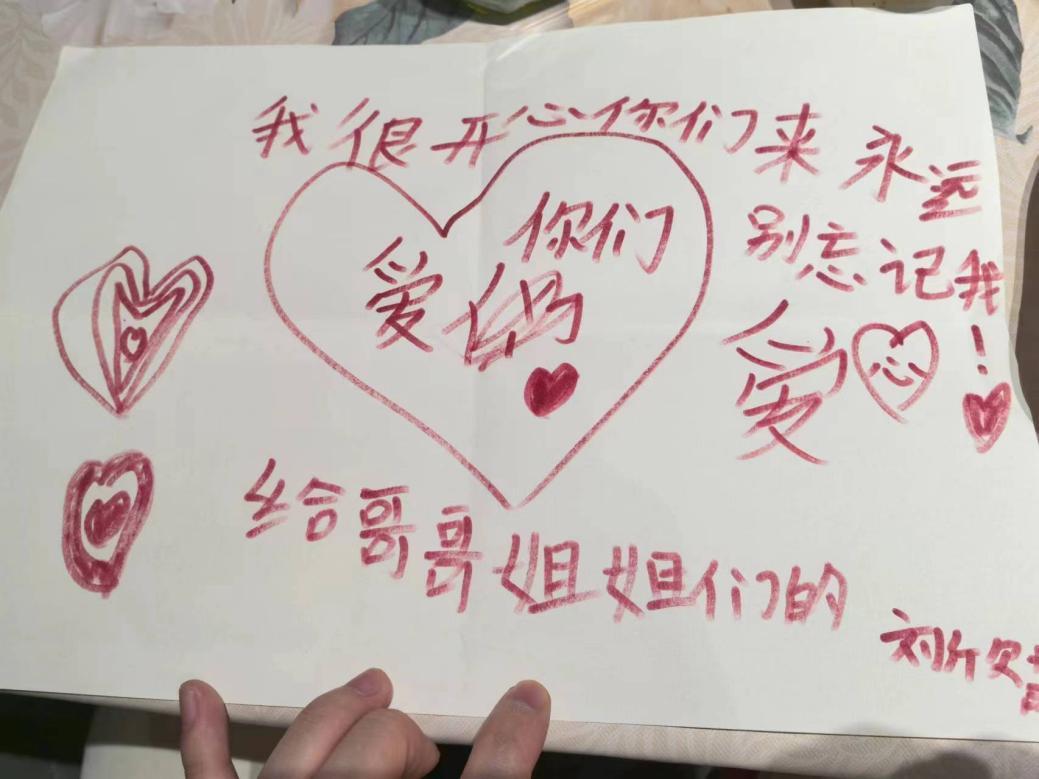 我很开心你们来 永远
别忘记我!
爱 你们
爱 心
给哥哥姐姐们的
刘欣